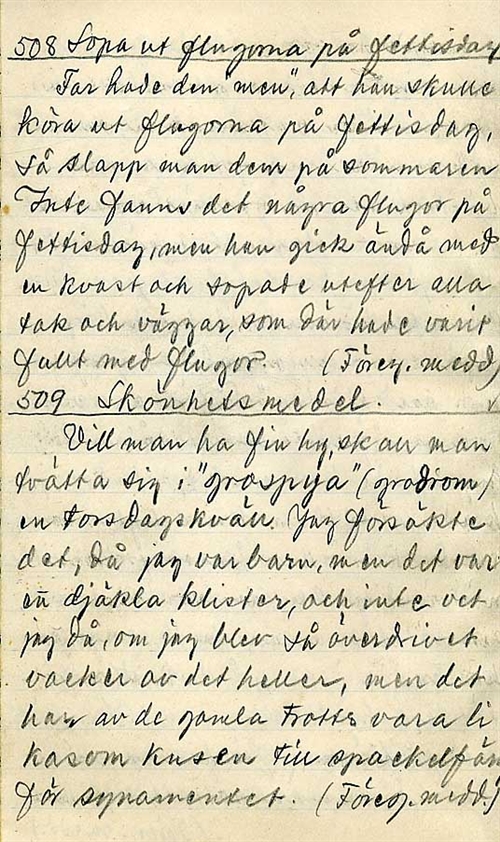 508 Sopa ut flugorna på fettisdag
Far hade den "men", att han skulle
köra ut flugorna på fettisdag,
så slapp man dem på sommaren
Inte fanns det några flugor på
fettisdag, men han gick ändå med
en kvast och sopade utefter alla
tak och väggar, som där hade varit
fullt med flugor. (Föreg. medd.)
509 Skönhetsmedel.
Vill man ha fin hy, skall man
tvätta sig i "grospya" (grodrom)
en torsdagskväll. Jag försökte
det, då jag var barn, men det var
en djäkla klister, och inte vet
jag då, om jag blev så överdrivet
vacker av det heller, men det
har av de gamla trotts vara li
kasom kusen till spackelfär
för synamentet. (Föreg. medd.)